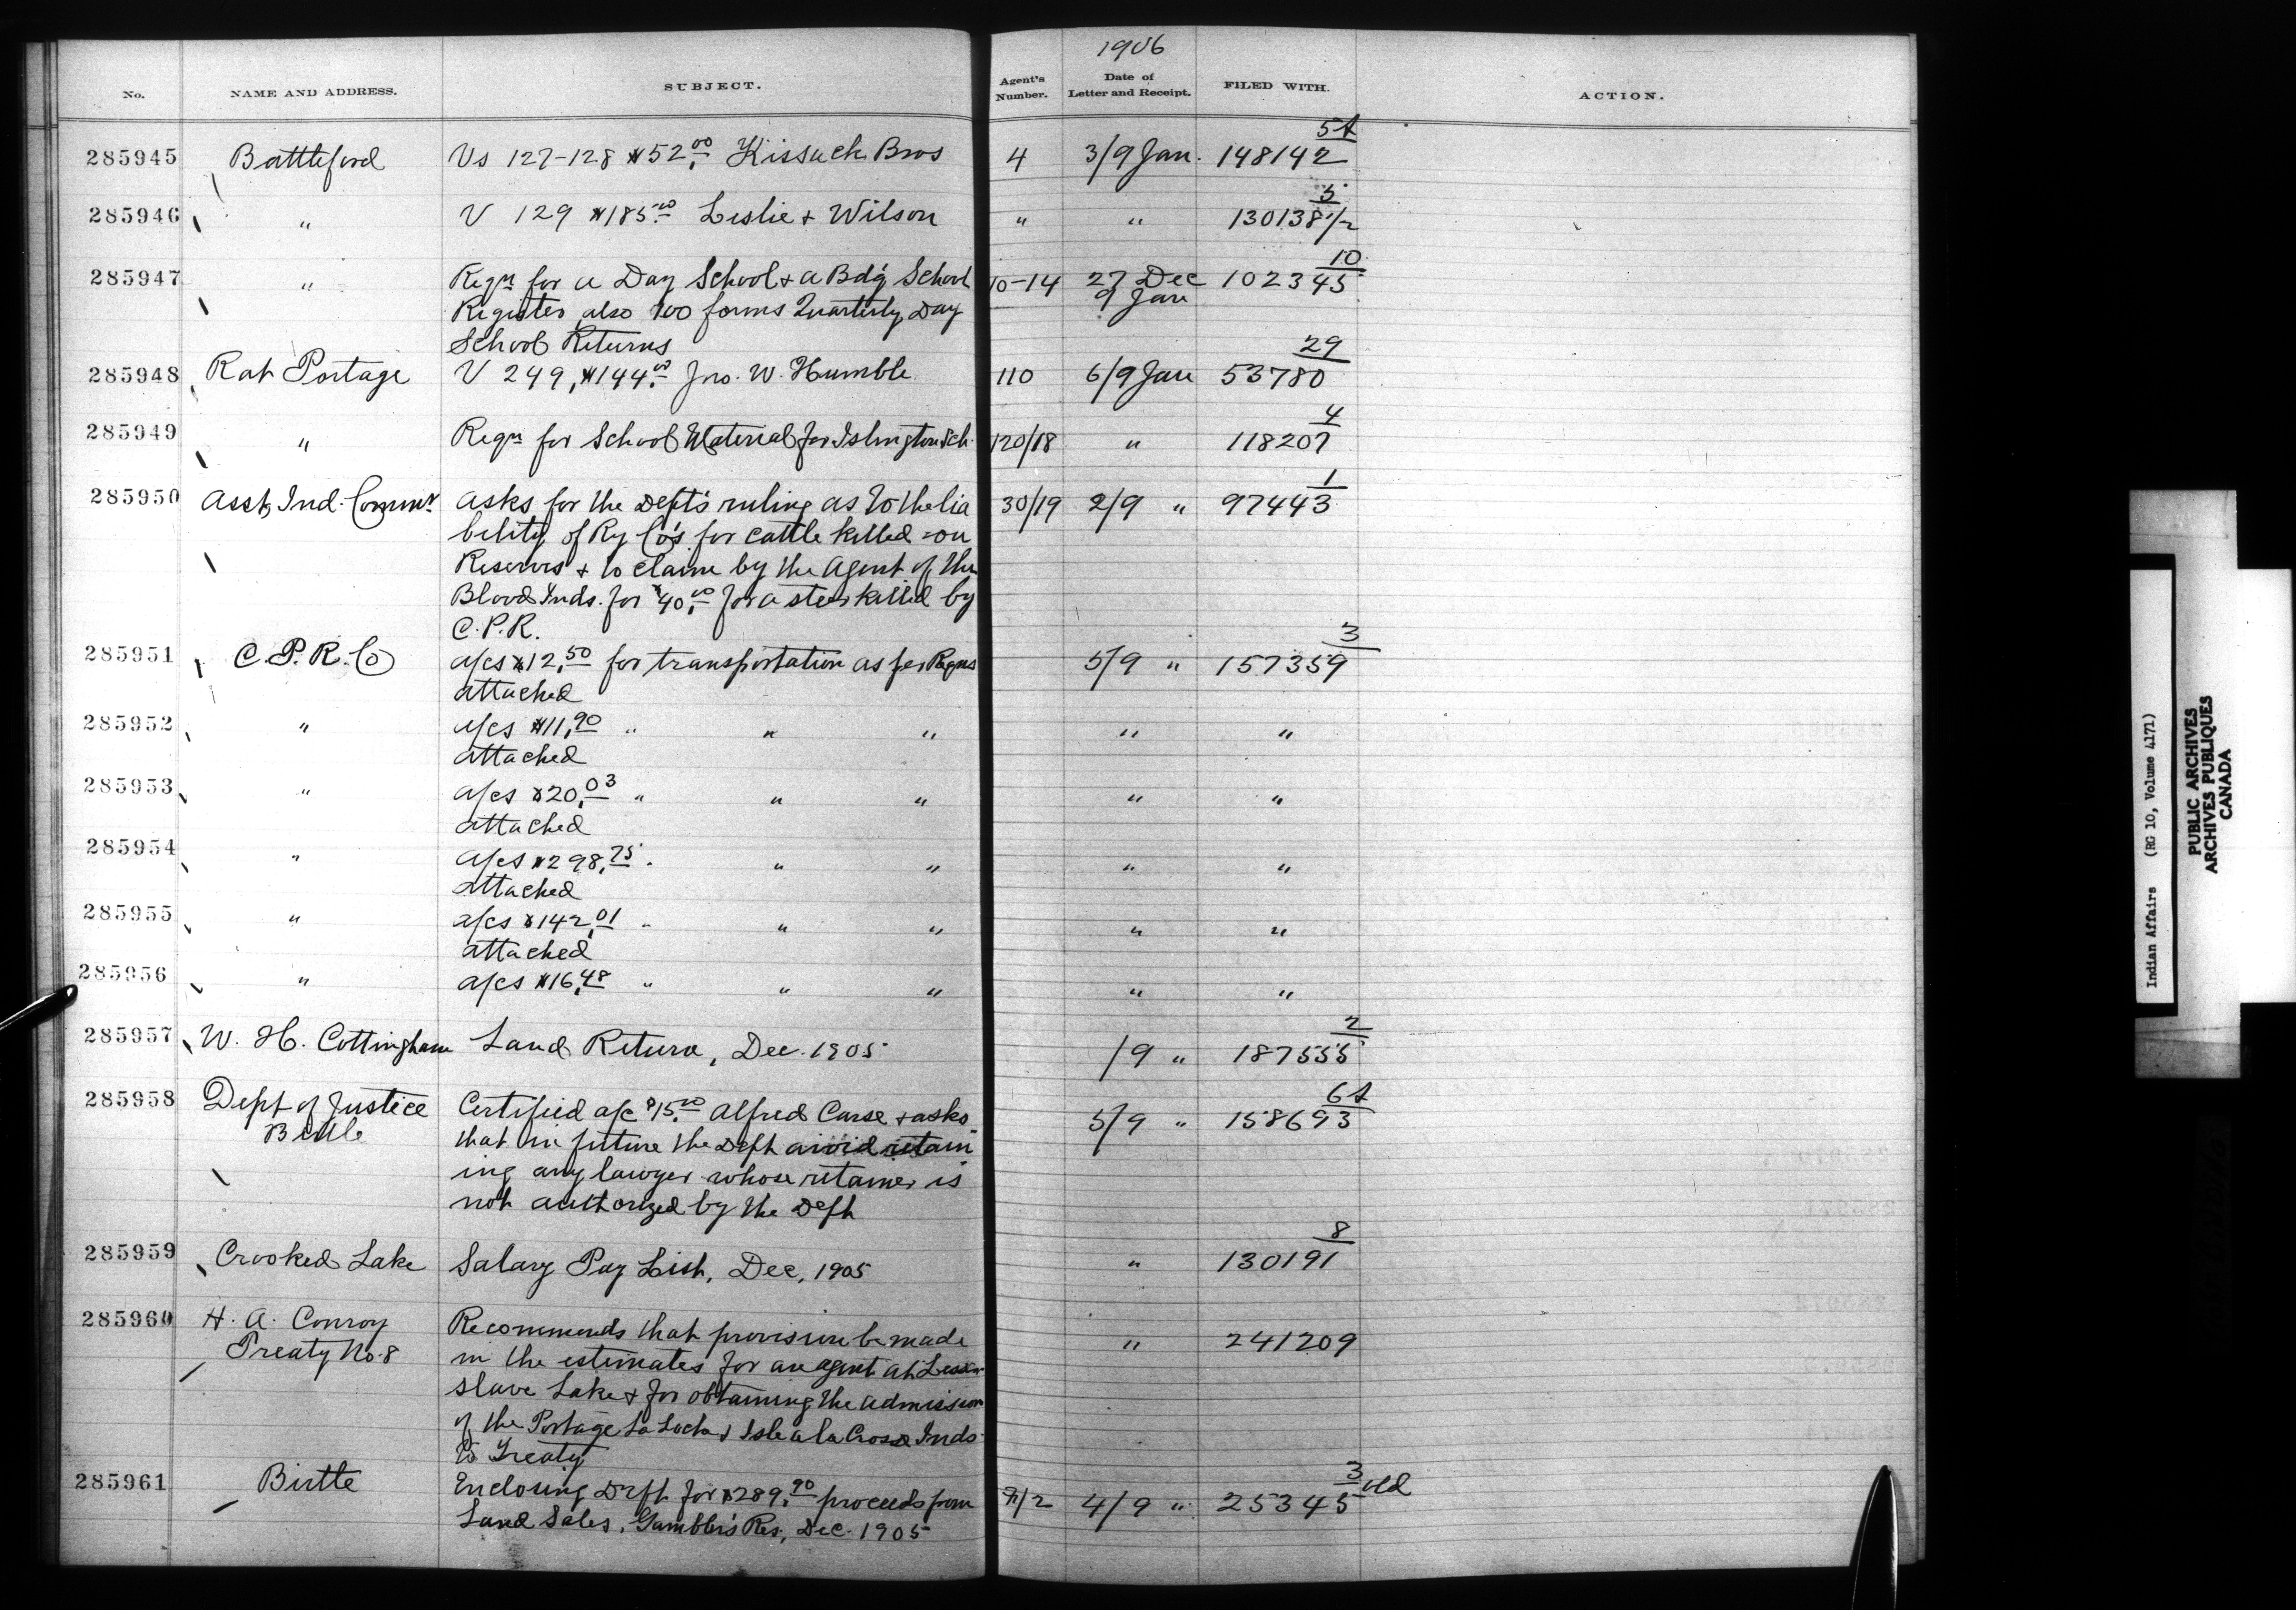 1906
No. NAME AND ADDRESS. SUBJECT. Agent's Number. Date of Letter and Receipt. FILED WITH. ACTION.
5A
285945 Battleford Vs 127-128 $52.00 Kissack Bros 4 3/9 Jan. 148142
5
285946 " V 129 $185.00 Leslie + Wilson " " 130138 1/2
10
285947 " Reqn for a Day School + a Bd'g School 10-14 27 Dec 102345
Register also 100 forms Quarterly Day 9 Jan
School Returns
29
285948 Rat Portage V 249, $144.00 Jno. W. Humble 110 6/9 Jan 53780
4
285949 " Reqn for School Material for Islington Sch. 120/18 " 118207
1
285950 Asst Ind. Commr asks for the Dept's ruling as to the lia 30/19 2/9 " 97443
bility of Ry Co's for cattle killed on
Reserves + to claim by the Agent of the
Blood Inds. for $40.00 for a steer killed by
C.P.R.
3
285951 C.P.R. Co a/cs $12.50 for transportation as per Reqns 5/9 " 157359
attached
285952 " a/cs $11.90 " " " " "
attached
285953 " a/cs $20.03 " " " " "
attached
285954 " a/cs $298.75 " " " " "
attached
285955 " a/cs $142.01 " " " " "
attached
285956 " a/cs $16.48 " " " " "
2
285957 W. H. Cottingham Land Return, Dec. 1905 /9 " 187555
6A
285958 Dept of Justice Certified a/c $15.00 Alfred Carse + asks 5/9 " 158693
that in future the Dept avoid retain
ing any lawyer whose retainer is
not authorized by the Dept
8
285959 Crooked Lake Salary Pay List, Dec, 1905 " 130191
285960 H. A. Conroy Recommends that provision be made " 241209
Treaty No. 8 in the estimates for an agent at Lesser
Slave Lake + for obtaining the admission
of the Portage La Loche + Isle a la Crosse Inds
to Treaty
3 old
285961 Birtle Enclosing Drft for $289.90 proceeds from 4/9 " 25345
Land Sales, Gambler's Res., Dec. 1905
Indian Affairs (RG 10, Volume 4171)
PUBLIC ARCHIVES
ARCHIVES PUBLIQUES
CANADA